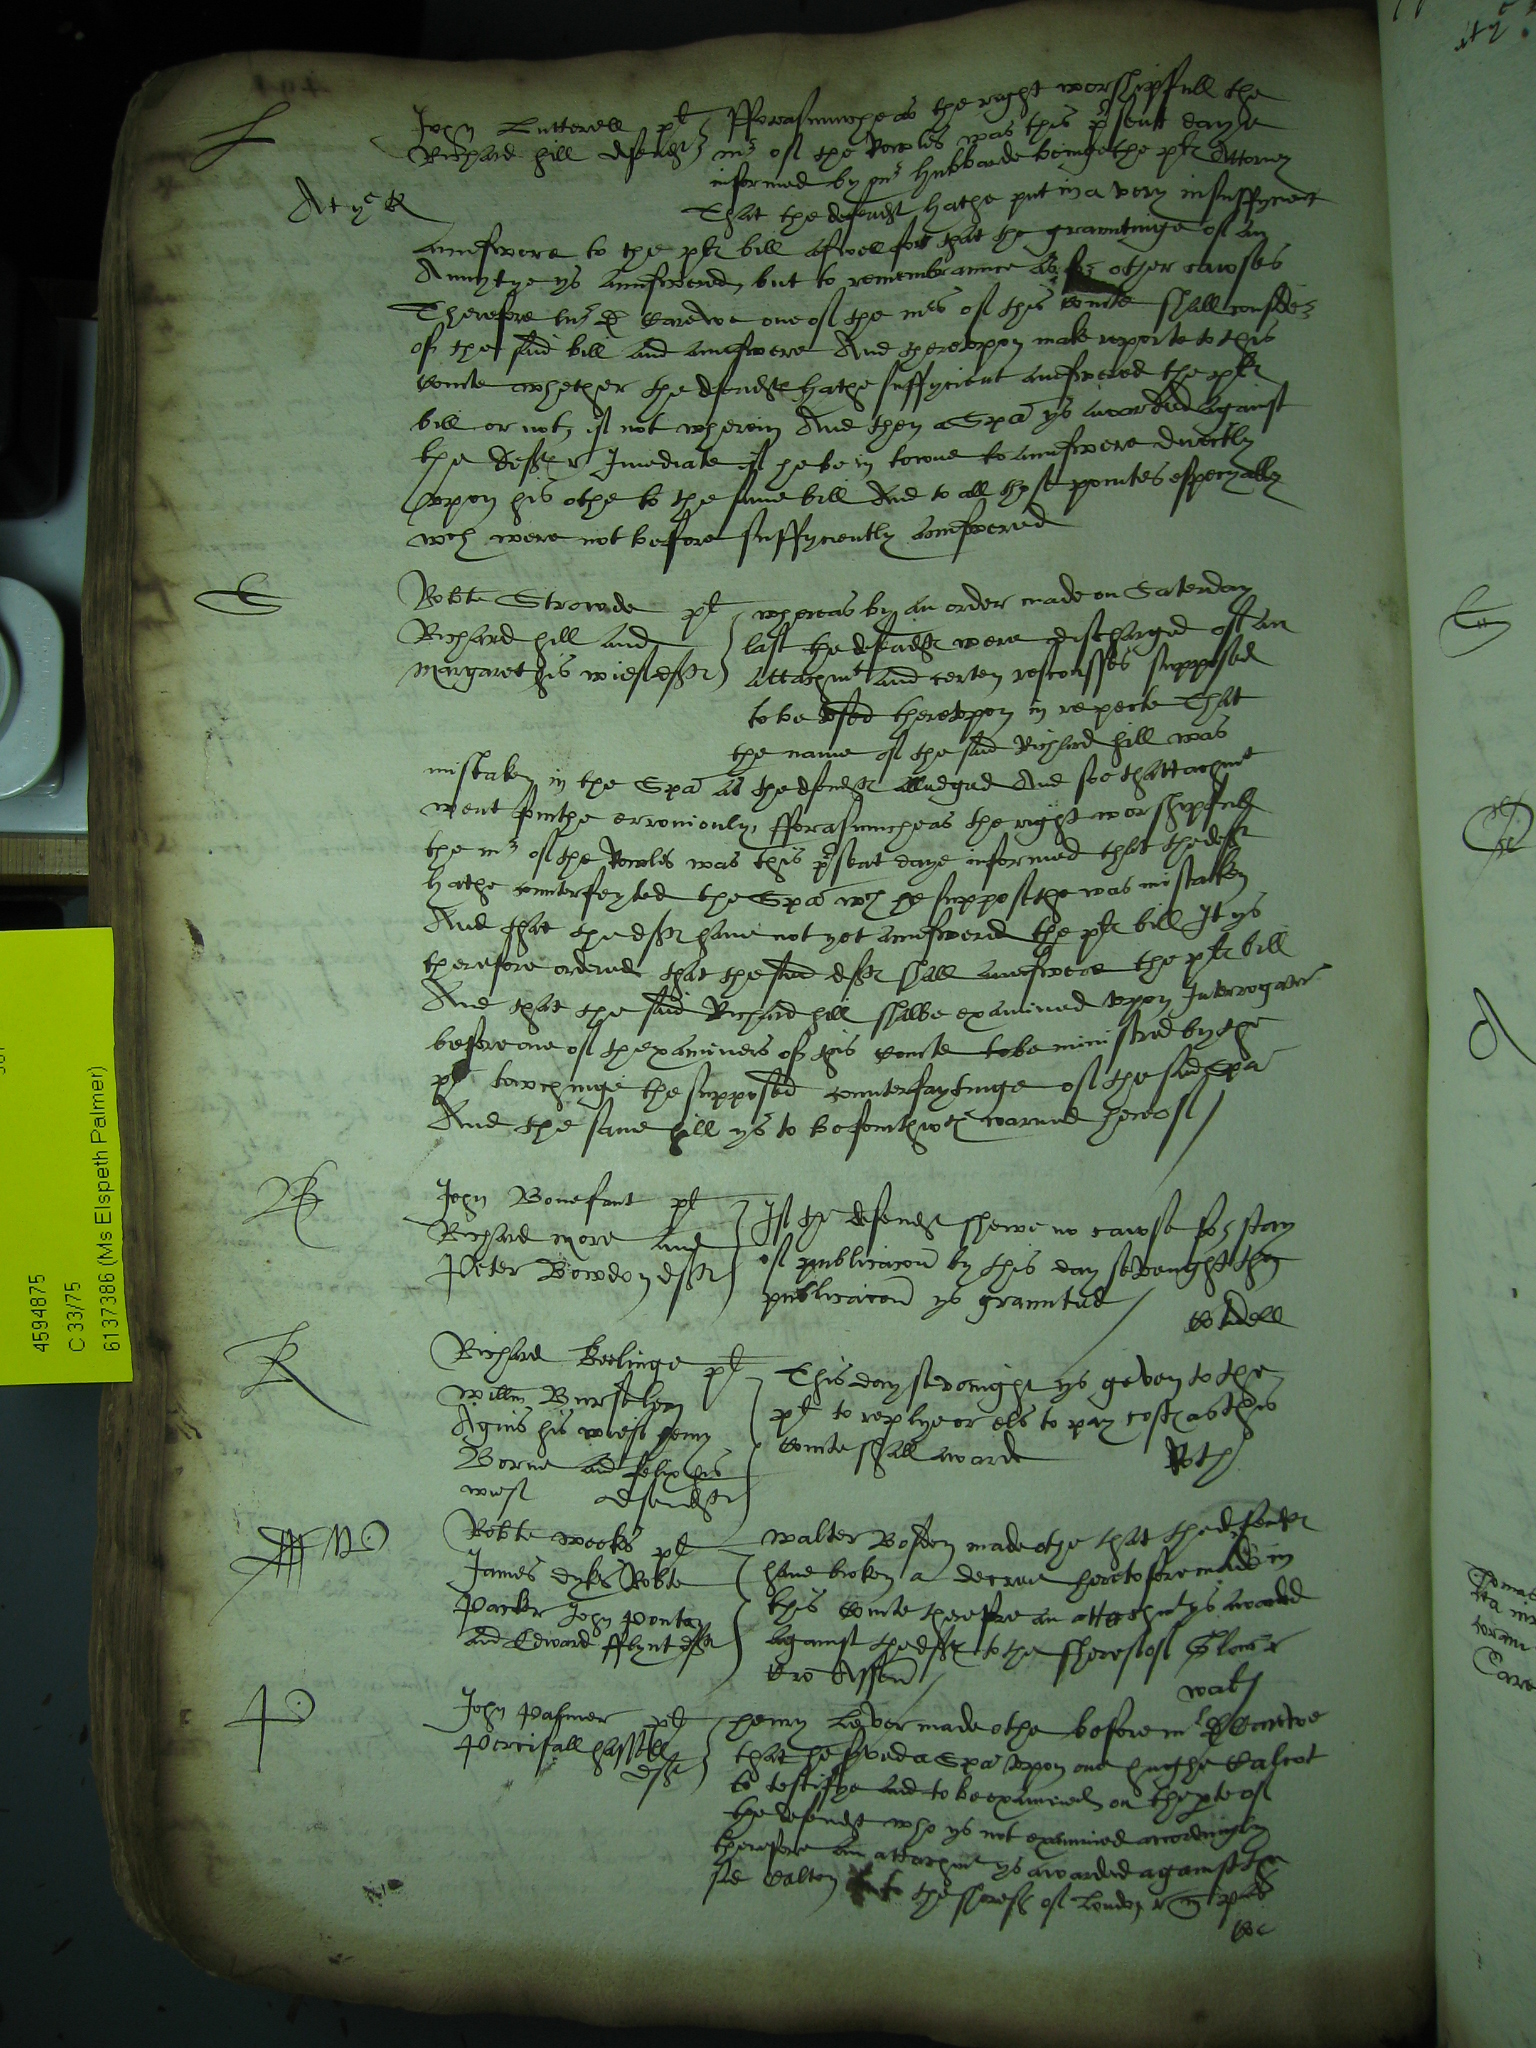 L
John Lutterell pl
Richard Hill defendt
Att ys R
fforasmuche as the right worshipfull the
mr of the Rowles was this psent daye
informed by mr Hubbarde beinge the pltes Attorney
That the defendt hathe put in a very insuffycient
aunswere to the pltes bill aswell for that the grauntinge of an
Annytye ys aunswered but to remembraunce as for other cawses
Therefore mr D Carewe one of the mrs of this Courte shall consider
of the said bill and aunswere And thereuppon make reporte to this
Courte whether the defendt hathe suffycient aunswered the pltes
bill or not, if not wherein And then a Spa ys awarded against
the deftes Imediate if he be in towne to aunswere directly
uppon his othe to the same bill And to all those pointes especyally
wch were not before suffyciently aunswered
S
Robte Strowde pl
Richard Hill and
Margaret his wief defts
whereas by an order made on Saterday
last the defendts were discharged of an
attachmt and certen rescousses supposed
to be used thereuppon in respecte That
the name of the said Richard Hill was
mistaken in the Spa as the defendts alledged And soe thattachmt
went fourthe erroniously, fforasmucheas the right worshipfull
the mr of the Rowles was this psent daye informed that the deft
hathe counterfeyted the Spa wch he supposethe was mistaken
And that the defts have not yet aunswered the pltes bill It ys
therefore ordered that the said defts shall aunswere the pltes bill
And that the said Richard Hill shalbe examined uppon Interrogatories
before one of thexaminers of this Courte to be ministred by the
pl towchinge the supposed counterfaytinge of the said Spa
And the same Hill ys to be forthwth warned hereof
B
John Bonefant pl
Richard More and
Peter Bowdon defts
If the defendts shewe no cawse for stay
of publicacon by this day sevenight then
publicacon ys graunted
Cordell
K
Richard Keelinge pl
Willm Burslem
Agnis his wief Henry
Borne and Felix his
wief defendts
This day sevenight ys geven to the
pl to replye or els to pay costes as this
Courte shall awarde
Poth
M
Robte Weekes pl
James Dykes Robte
Parker John Ponton
and Edward fflynt defts
Walter Bosden made othe that the defendts
have broken a decree heretofore made in
this Courte therefore an attachmt ys awarded
against the defts to the Sheref of Glouc
Cro Assen
Wals
P
John Palmer pl
Percifall Hassall
deft
Henry Lever made othe before mr D Carewe
that he served a Spa uppon one Hughe Calcot
to testifye and to be examined on the pte of
the defendt who ys not examined accordingly
therefore an attachmt ys awarded against the
sd Calcot to the Sherefs of London
&c
4594875
C 33/75
6137386 (Ms Elspeth Palmer)